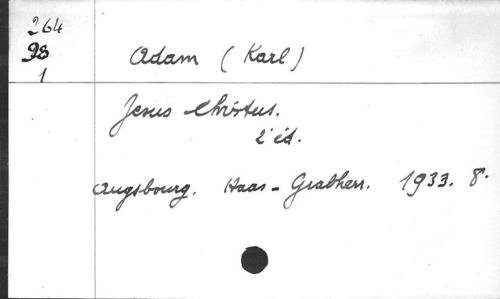 264
98
1
Adam (Karl)
Jesus Christus.
2 éd.
Augsbourg. Haas-Grabherr. 1933. 8°.